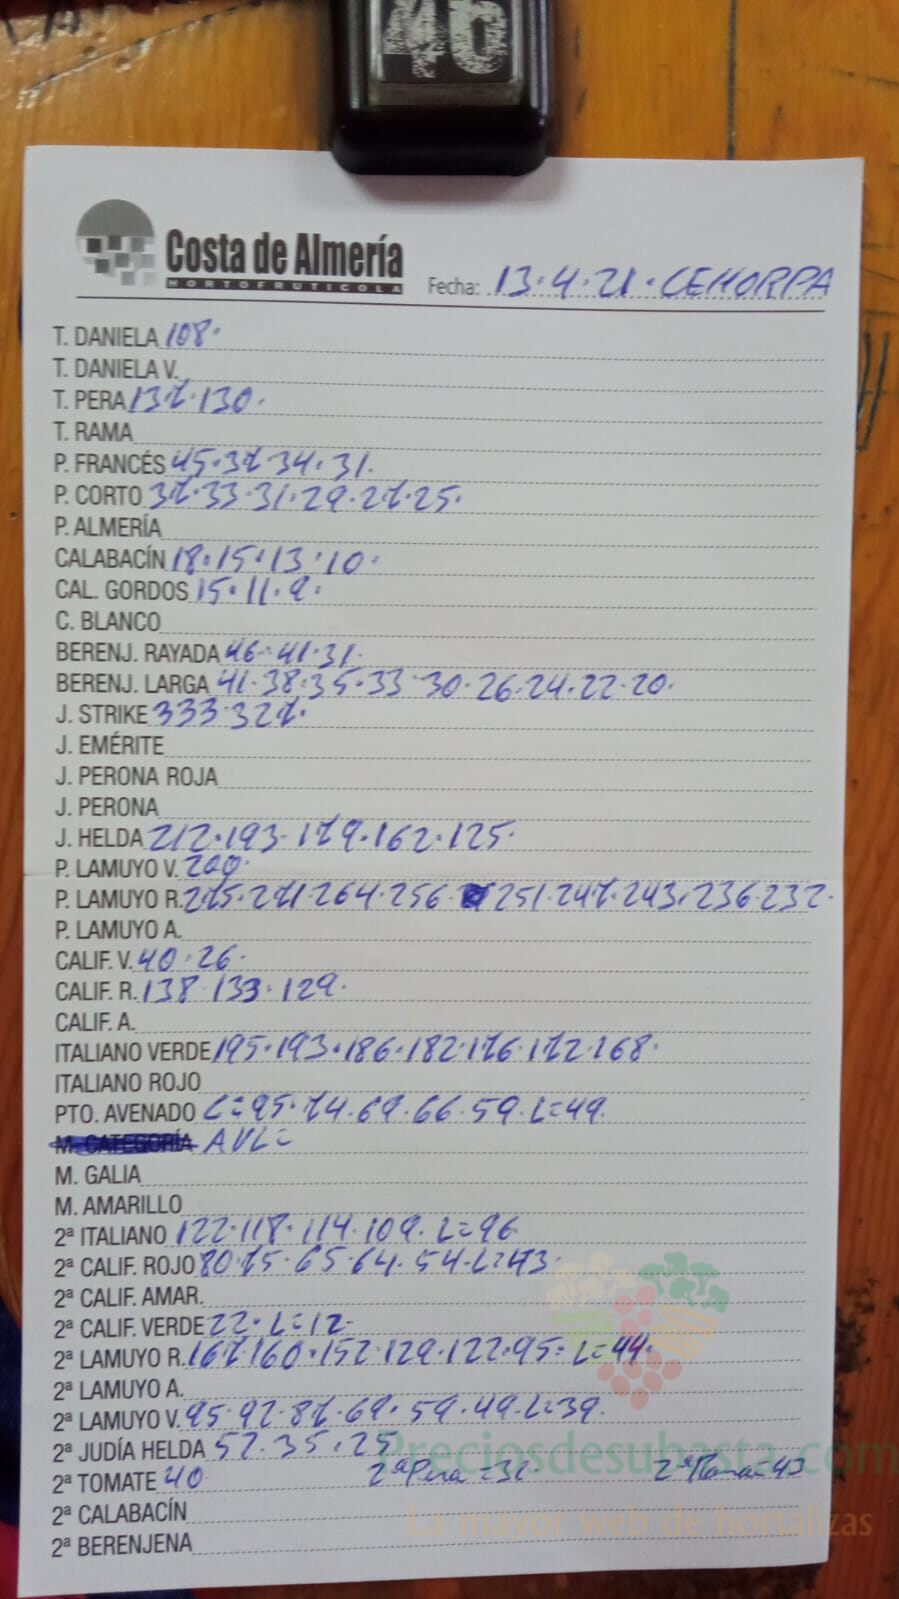 46
Costa de Almería
HORTOFRUTICOLA
Fecha: 13.4.21. CEHORPA
T. DANIELA 108.
T. DANIELA V.
T. PERA 137.130.
T. RAMA
P. FRANCÉS 45.37.34.31.
P. CORTO 37.33.31.29.27.25.
P. ALMERÍA
CALABACÍN 18.15.13.10.
CAL. GORDOS 15.11.9.
C. BLANCO
BERENJ. RAYADA 46.41.31.
BERENJ. LARGA 41.38.35.33.30.26.24.22.20.
J. STRIKE 333.327.
J. EMÉRITE
J. PERONA ROJA
J. PERONA
J. HELDA 212.193.179.162.125.
P. LAMUYO V. 200.
P. LAMUYO R. 275.271.264.256. 251.247.243.236.232.
P. LAMUYO A.
CALIF. V. 40.26.
CALIF. R. 138.133.129.
CALIF. A.
ITALIANO VERDE 195.193.186.182.176.172.168.
ITALIANO ROJO
PTO. AVENADO C=95.74.69.66.59.L=49.
M. CATEGORÍA AVL=
M. GALIA
M. AMARILLO
2ª ITALIANO 122.118.114.109.L=96
2ª CALIF. ROJO 80.75.65.64.54.L=43.
2ª CALIF. AMAR.
2ª CALIF. VERDE 22.L=12.
2ª LAMUYO R. 167.160.152.129.122.95.L=44.
2ª LAMUYO A.
2ª LAMUYO V. 95.92.87.69.59.49.L=39.
2ª JUDÍA HELDA 52.35.25
Preciosdesubasta.com
2ª TOMATE 40 2ª Pera=31. 2ª Rama=43
2ª CALABACÍN
La mayor web de hortalizas
2ª BERENJENA